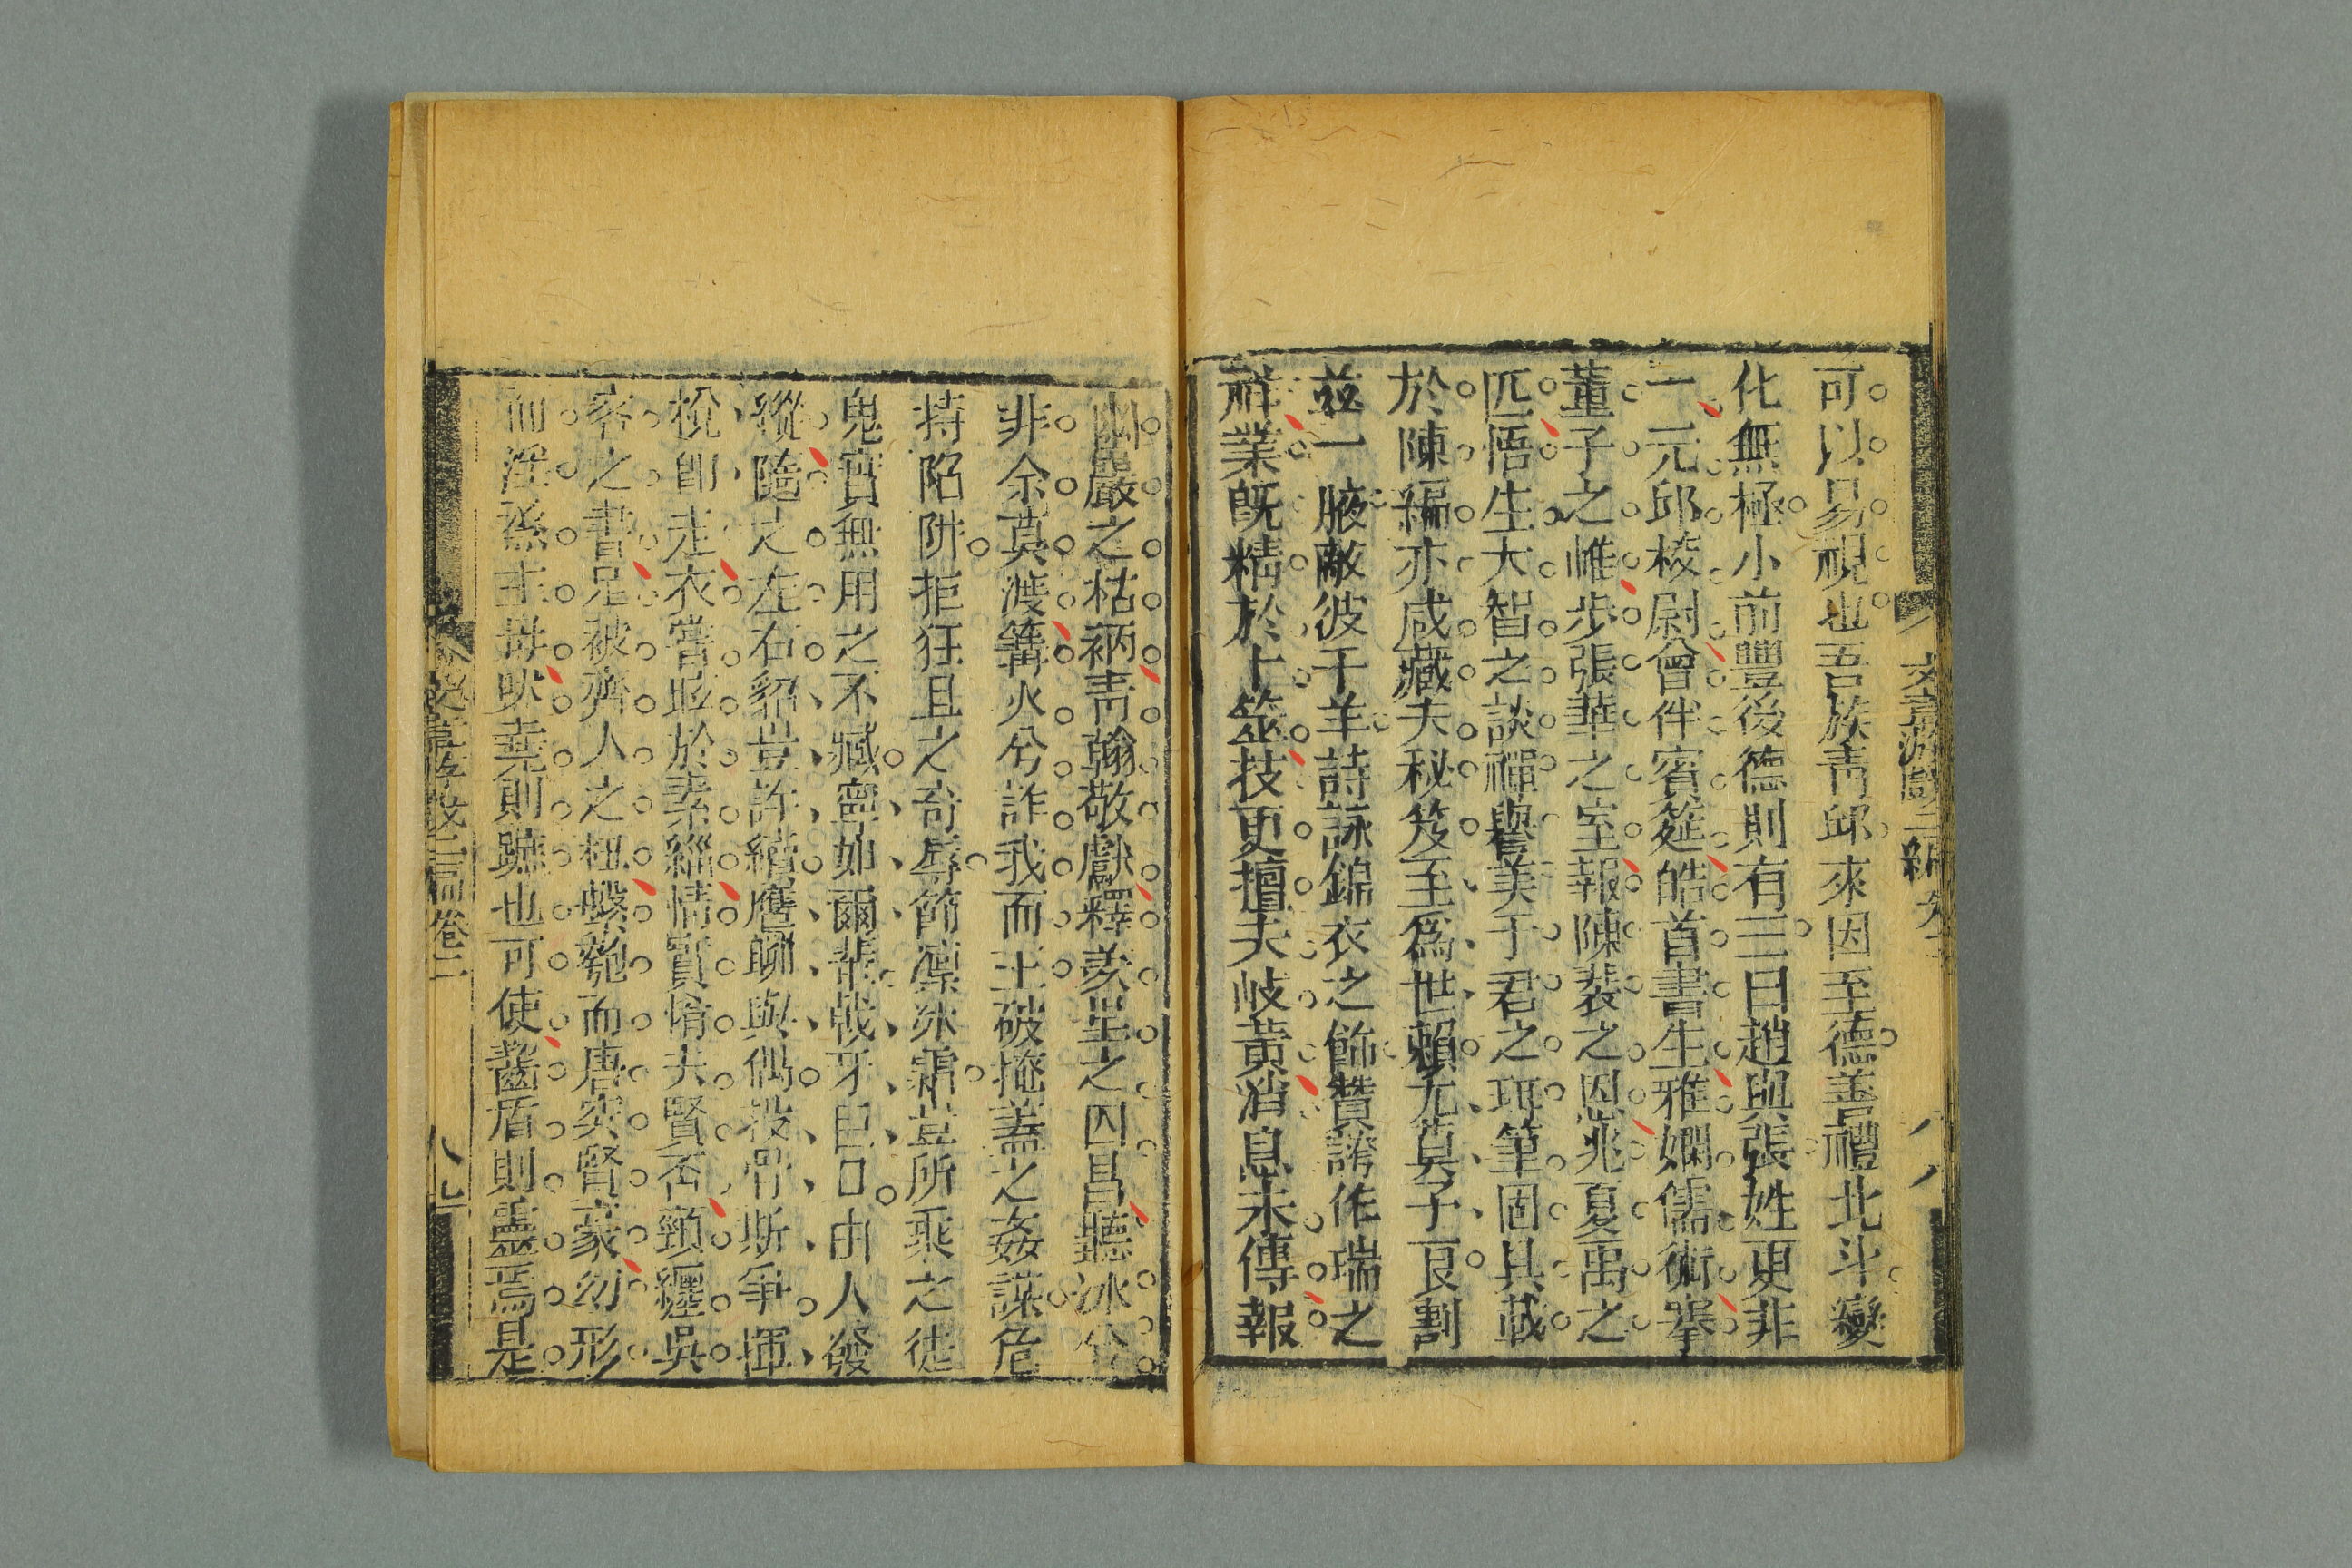 文章游戲三編 卷二
八八
可以易視也吾族青邱來因至德善禮北斗變
化無極小前豐後德則有三曰趙與張姓更非
一元邱校尉曾伴賓筵皓首書生雅嫻儒術搴
董子之帷步張華之室報陳裴之恩兆夏禹之
匹悟生大智之談禪譽美于君之珥筆固其載
於陳編亦咸藏夫秘笈至為世賴尤莫予良割
茲一腋敵彼千羊詩詠錦衣之飾贊誇作瑞之
祥業旣精於卜筮技更擅夫岐黃消息未傳報
幽巖之枯衲靑翰敬獻釋羑里之囚昌聽冰兮
非余莫渡篝火兮詐我而王破掩蓋之姦謀危
持陷阱拒狂且之奇辱節凜冰霜豈所乘之徒
鬼實無用之不臧寧如爾輩戟牙巨口由人發
縱隨之左右貂豈許續鷹聊與偶投骨斯爭揮
梲卽走衣嘗取於素緇情實揹夫賢否頸纏吳
客之書足被齊人之杻盤瓠而唐突賢豪勿形
而淫烝主母吠堯則蹠也可使齧盾則靈焉是
文章游戲三編 卷二
八九